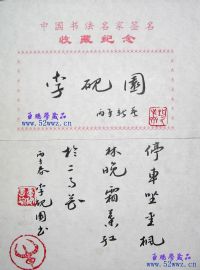 中国书法名家签名
收藏纪念
李砚園
www.52wwz.cn
停車坐爱楓
林晚霜葉红
於二月花
丙子春李砚園书
www.52wwz.cn